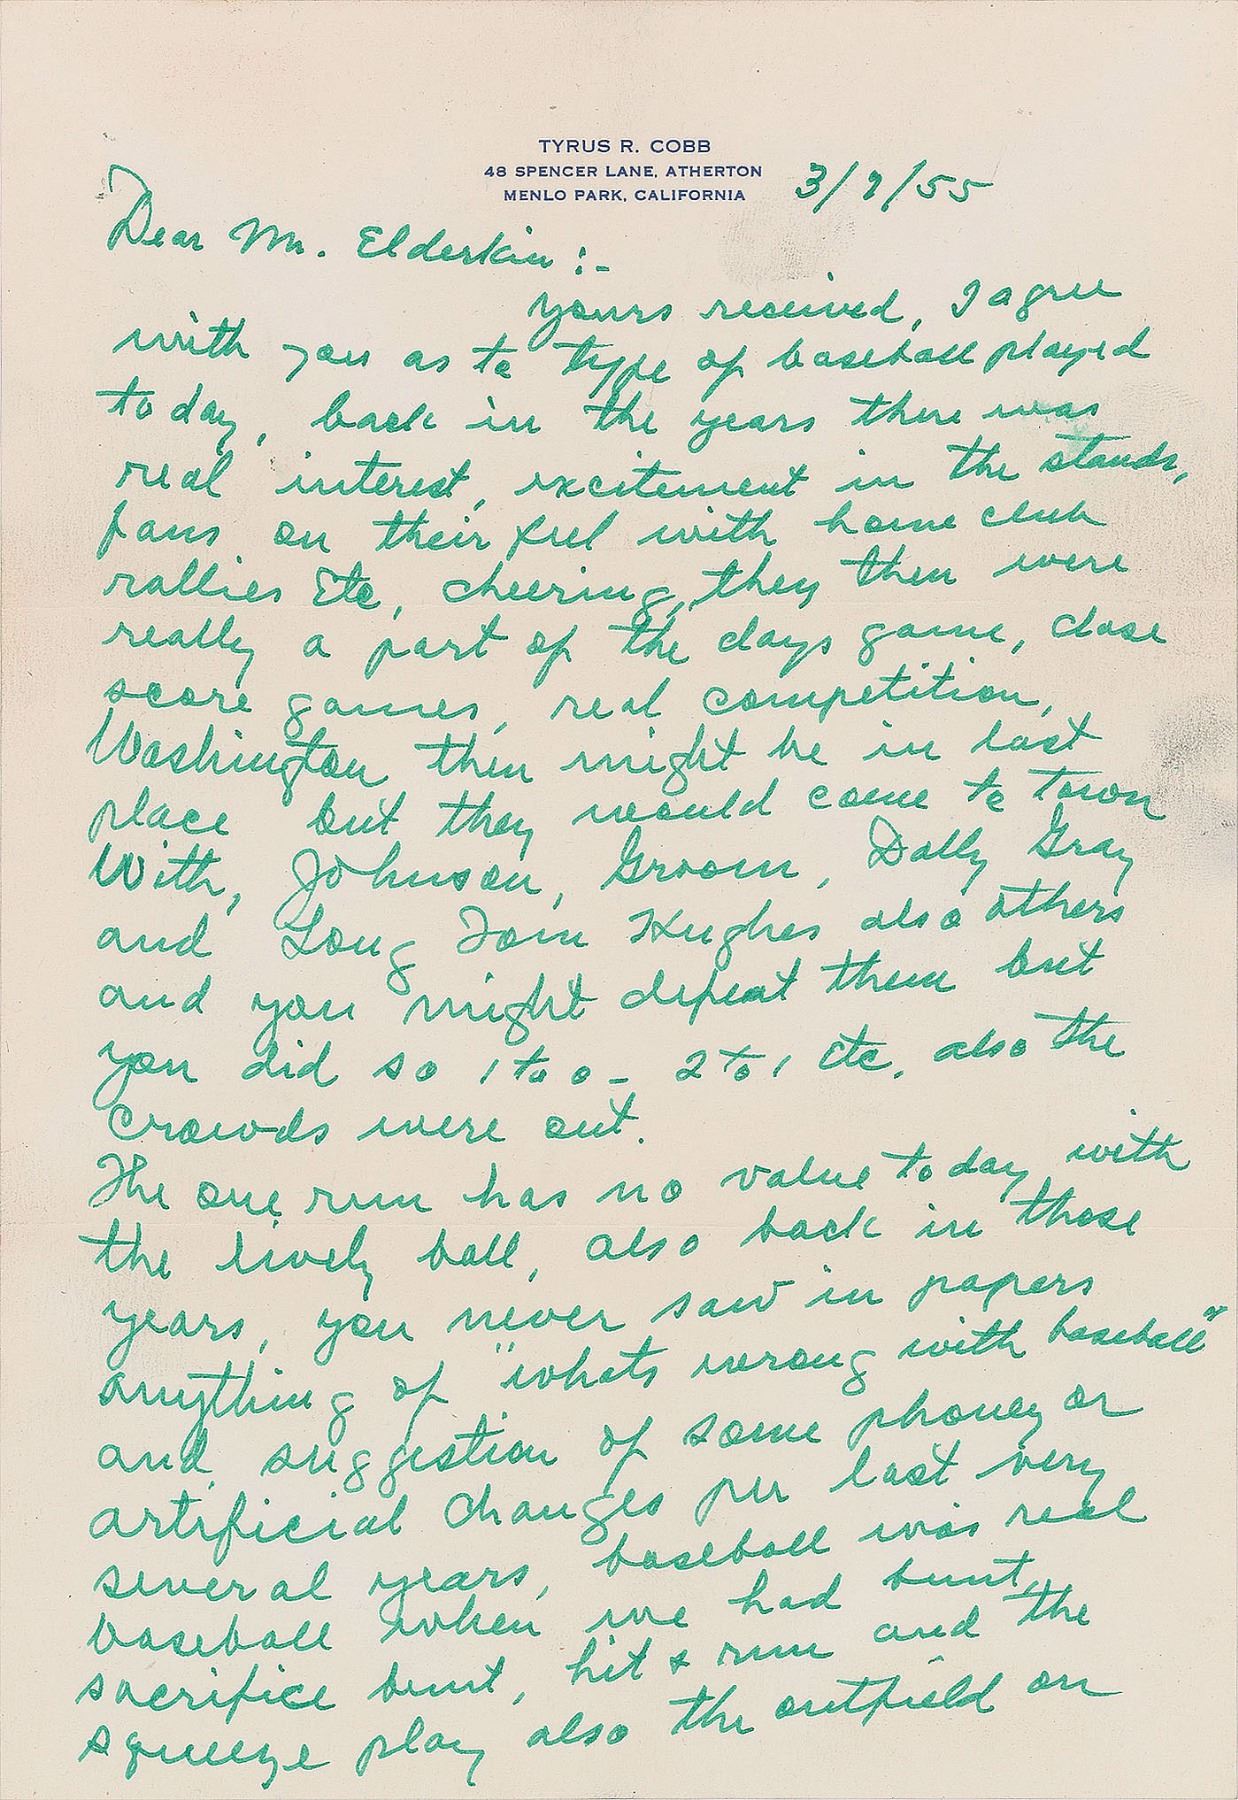 TYRUS R. COBB
48 SPENCER LANE, ATHERTON
MENLO PARK, CALIFORNIA
3/9/55
Dear Mr. Elderkin :-
yours received, I agree
with you as to type of baseball played
to day, back in the years there was
real interest, excitement in the stands,
fans on their feet with home club
rallies Etc, cheering, they then were
really a part of the days game, close
score games, real competition,
Washington then might be in last
place but they would come to town
With, Johnson, Groom, Dolly Gray
and Long Tom Hughes also others
and you might defeat them but
you did so 1 to 0 - 2 to 1 etc. also the
crowds were out.
The one run has no value to day with
the lively ball, also back in those
years, you never saw in papers
anything of "whats wrong with baseball"
and suggestion of some phoney or
artificial changes per last very
several years, baseball was real
baseball when we had bunt,
sacrifice bunt, hit & run and the
squeeze play also the outfield on